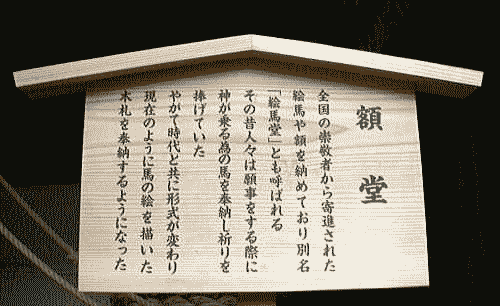 額堂
全国の崇敬者から寄進された
絵馬や額を納めており別名
「絵馬堂」とも呼ばれる
その昔人々は願事をする際に
神が乗る為の馬を奉納し祈りを
捧げていた
やがて時代と共に形式が変わり
現在のように馬の絵を描いた
木札を奉納するようになった